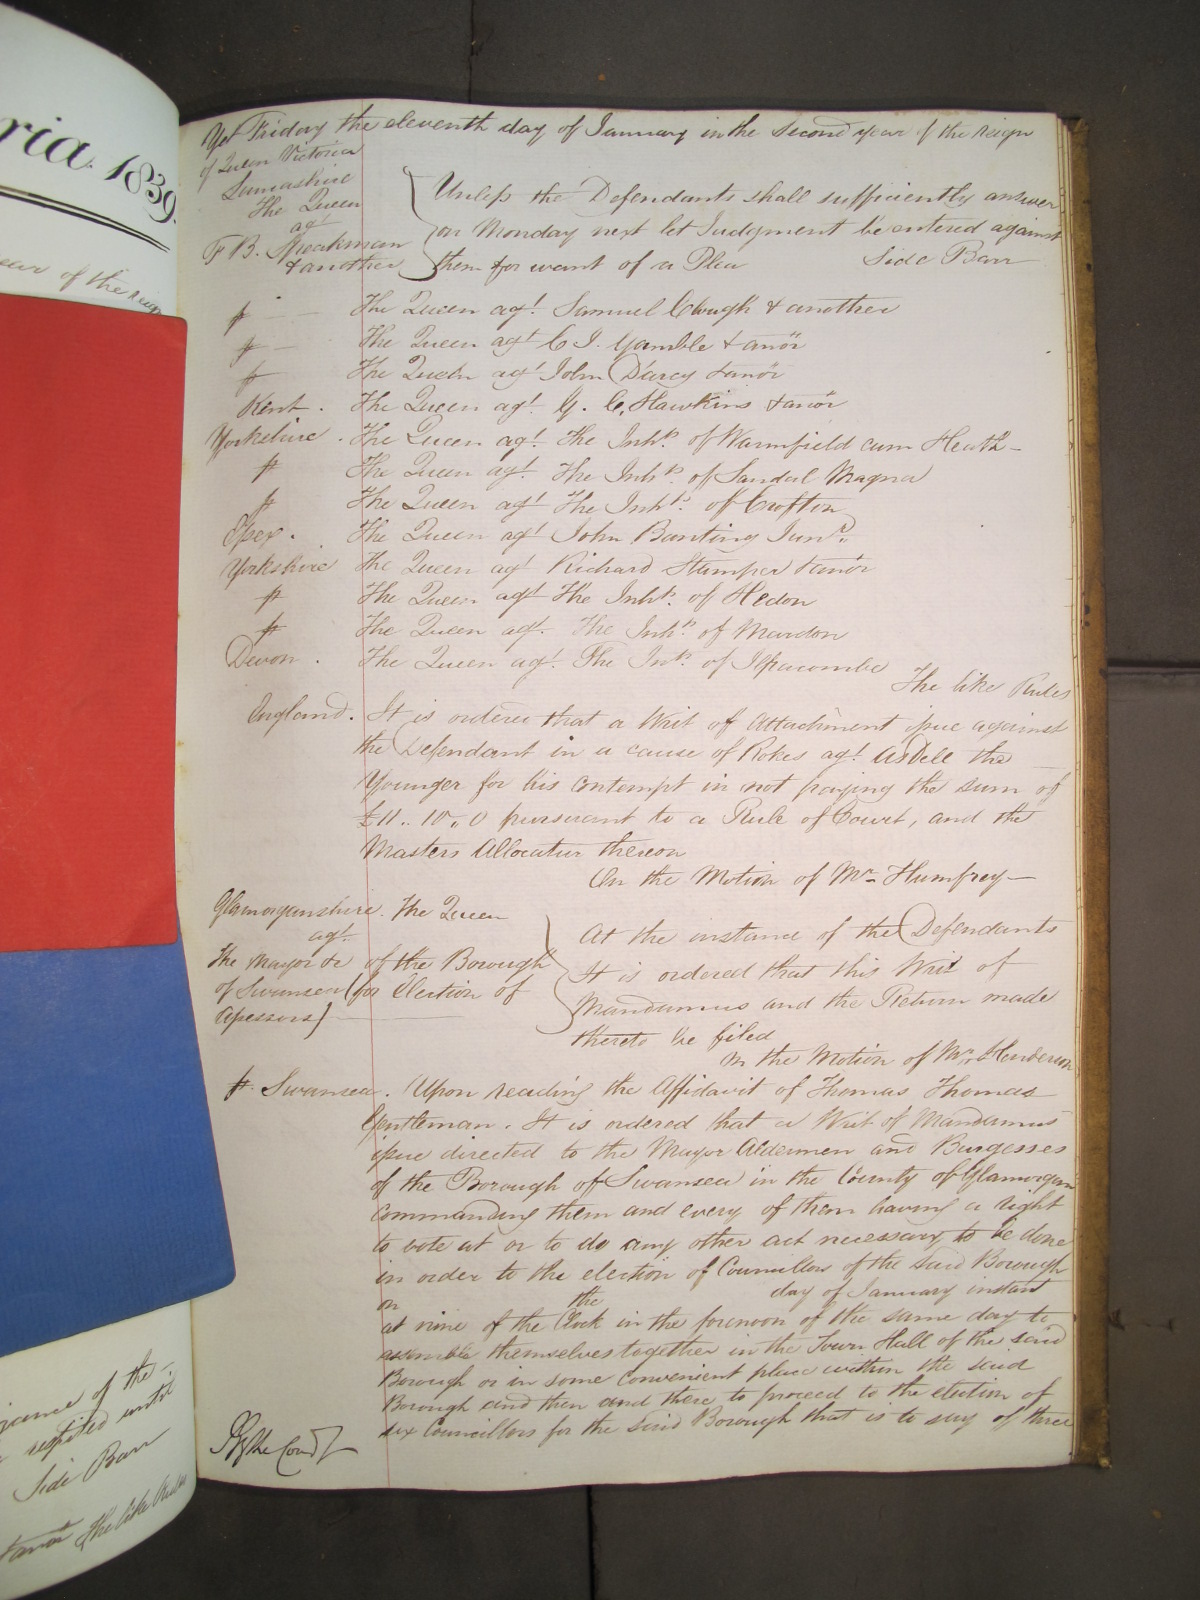 ria. 1839.
year of the reign
Yet Friday the eleventh day of January in the second year of the reign
of Queen Victoria
Lancashire
The Queen
agt
F B. & another
Unless the Defendants shall sufficiently answer
on Monday next let Judgment be entered against
them for want of a Plea Side Barr
The Queen agt. Samuel Clough & another
The Queen agt C J. Gamble & anor
The Queen agt John Darcy & anor
Kent. The Queen agt. G. C. Hawkins & anor
Yorkshire. The Queen agt. The Inhts. of Warmfield cum Heath
The Queen agt. The Inhts. of Sandal Magna
The Queen agt The Inhts. of Crofton
Essex. The Queen agt John Banting Junr.
Yorkshire The Queen agt Richard Stamper & anor
The Queen agt The Inhts. of Hedon
The Queen agt. The Inhts. of
Devon. The Queen agt. The Inhts. of Ilfracombe
The like Rules
England. It is ordered that a Writ of Attachment issue against
the Defendant in a cause of Rokes agt. Asdell the
Younger for his contempt in not paying the sum of
£11.. 10.. 0 pursuant to a Rule of Court, and the
Masters Allocatur thereon
On the Motion of Mr. Humfrey
Glamorganshire. The Queen
agt.
The Mayor &c of the Borough
of Swansea (for Election of
Assessors)
At the instance of the Defendants
It is ordered that this Writ of
Mandamus and the Return made
thereto be filed
On the Motion of Mr. Henderson
Swansea. Upon reading the Affidavit of Thomas Thomas
Gentleman. It is ordered that a Writ of Mandamus
issue directed to the Mayor Aldermen and Burgesses
of the Borough of Swansea in the County of Glamorgan
commanding them and every of them having a right
to vote at or to do any other act necessary to be done
in order to the election of Councillors of the said Borough
on the day of January instant
at nine of the Clock in the forenoon of the same day to
assemble themselves together in the Town Hall of the said
Borough or in some convenient place within the said
Borough and then and there to proceed to the election of
six Councillors for the said Borough that is to say of three
By the Court
of the
respited until
Side Barr
The like Rules